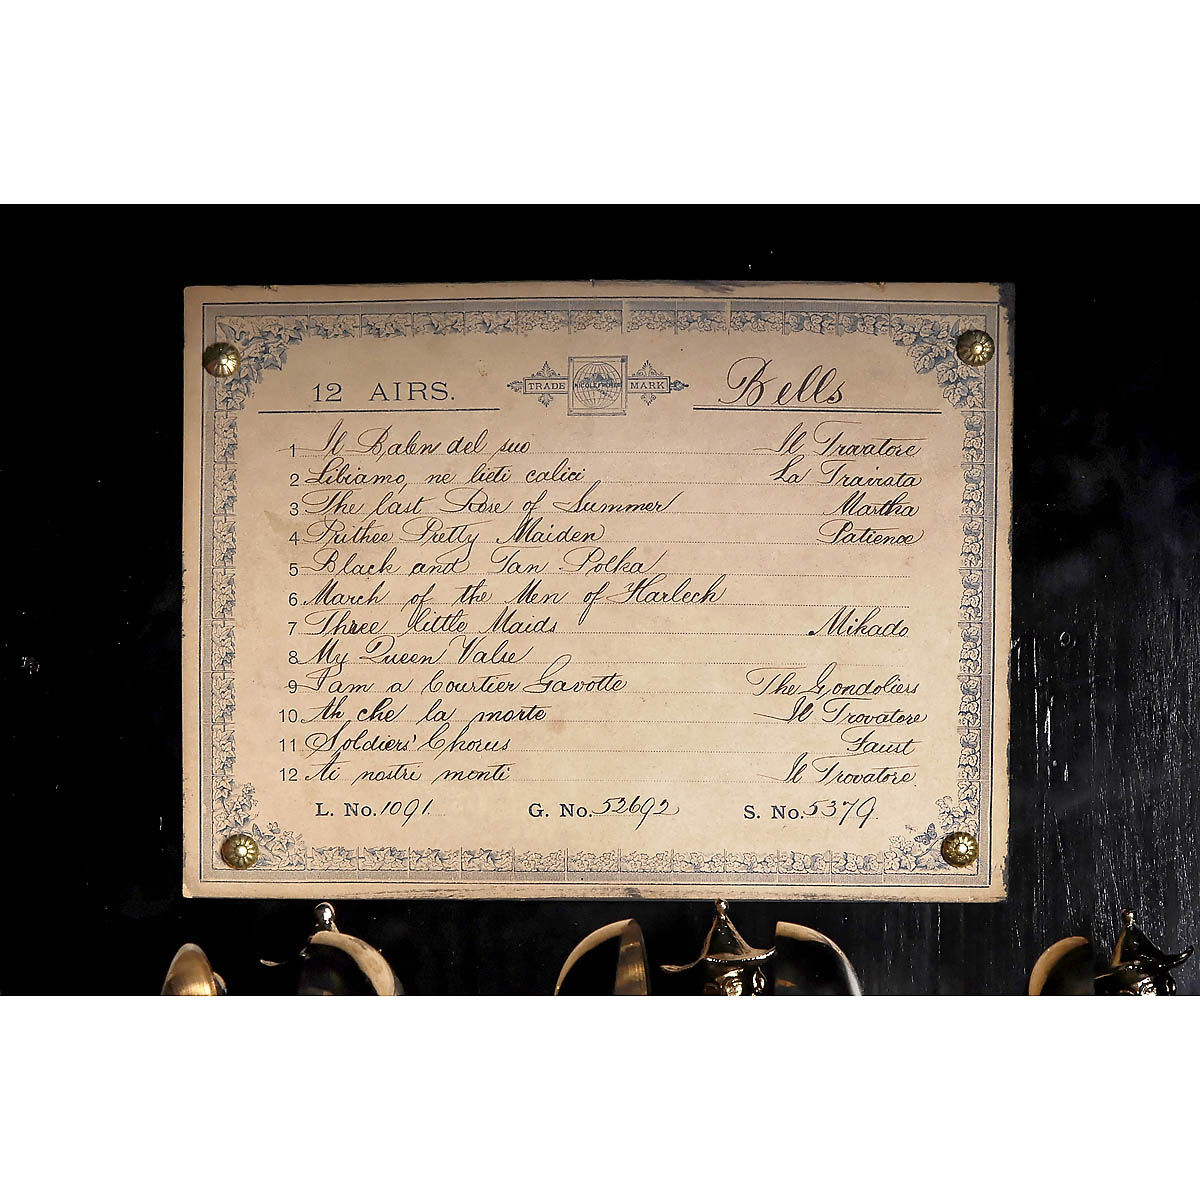 12 AIRS. TRADE NICOLE FRERES MARK Bells
1 Il Balen del suo Il Trovatore
2 Libiamo, ne lieti calici La Traviata
3 The last Rose of Summer Martha
4 Prithee Pretty Maiden Patience
5 Black and Tan Polka
6 March of the Men of Harlech
7 Three little Maids Mikado
8 My Queen Valse
9 I am a Courtier Gavotte The Gondoliers
10 Ah che la morte Il Trovatore
11 Soldiers' Chorus Faust
12 Ai nostri monti Il Trovatore.
L. No. 1091. G. No. 52692 S. No. 5379.